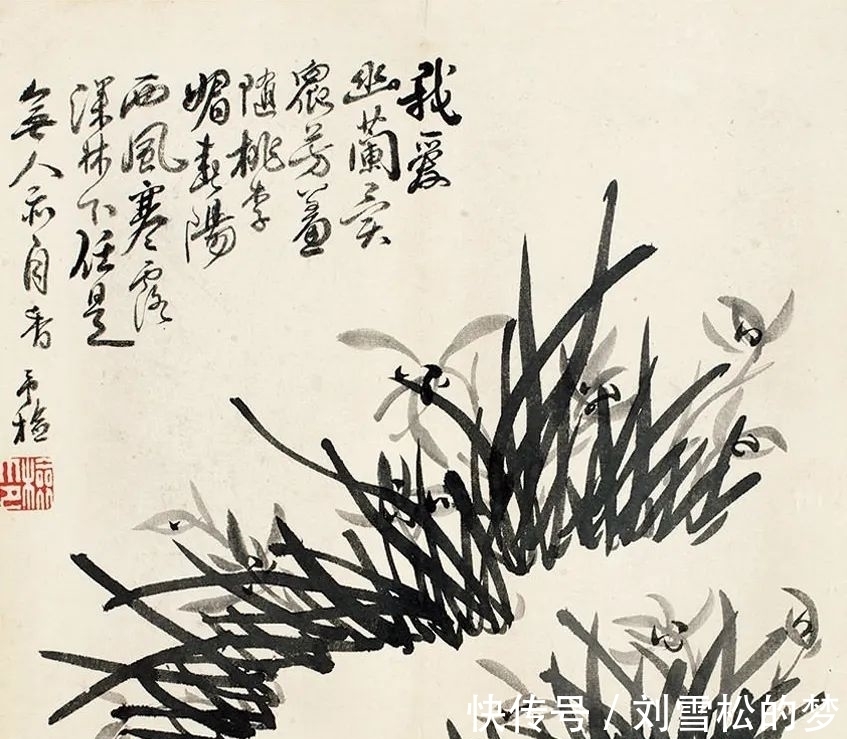 我愛
幽蘭異
眾芳羞
隨桃李
媚春陽
西風寒露
深林下任是
無人亦自香
快传号 / 刘雪松的梦